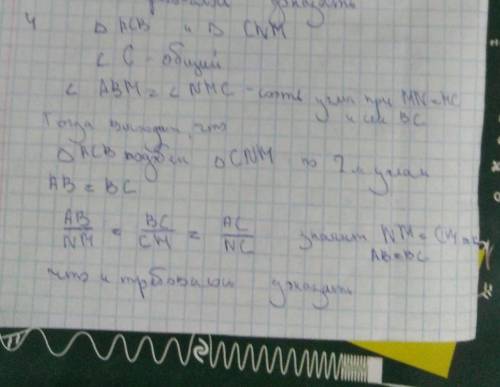 доказать
4 Δ ACB и Δ CNM
∠ C - общий
∠ ABM = ∠ NMC - соотв углы при MN = MC
и сек BC
Тогда выходит, что
Δ ACB подобен Δ CNM по 2м углам
AB = BC
AB/NM = BC/CM = AC/NC значит NM = CM
AB=BC
что и требовалось доказать